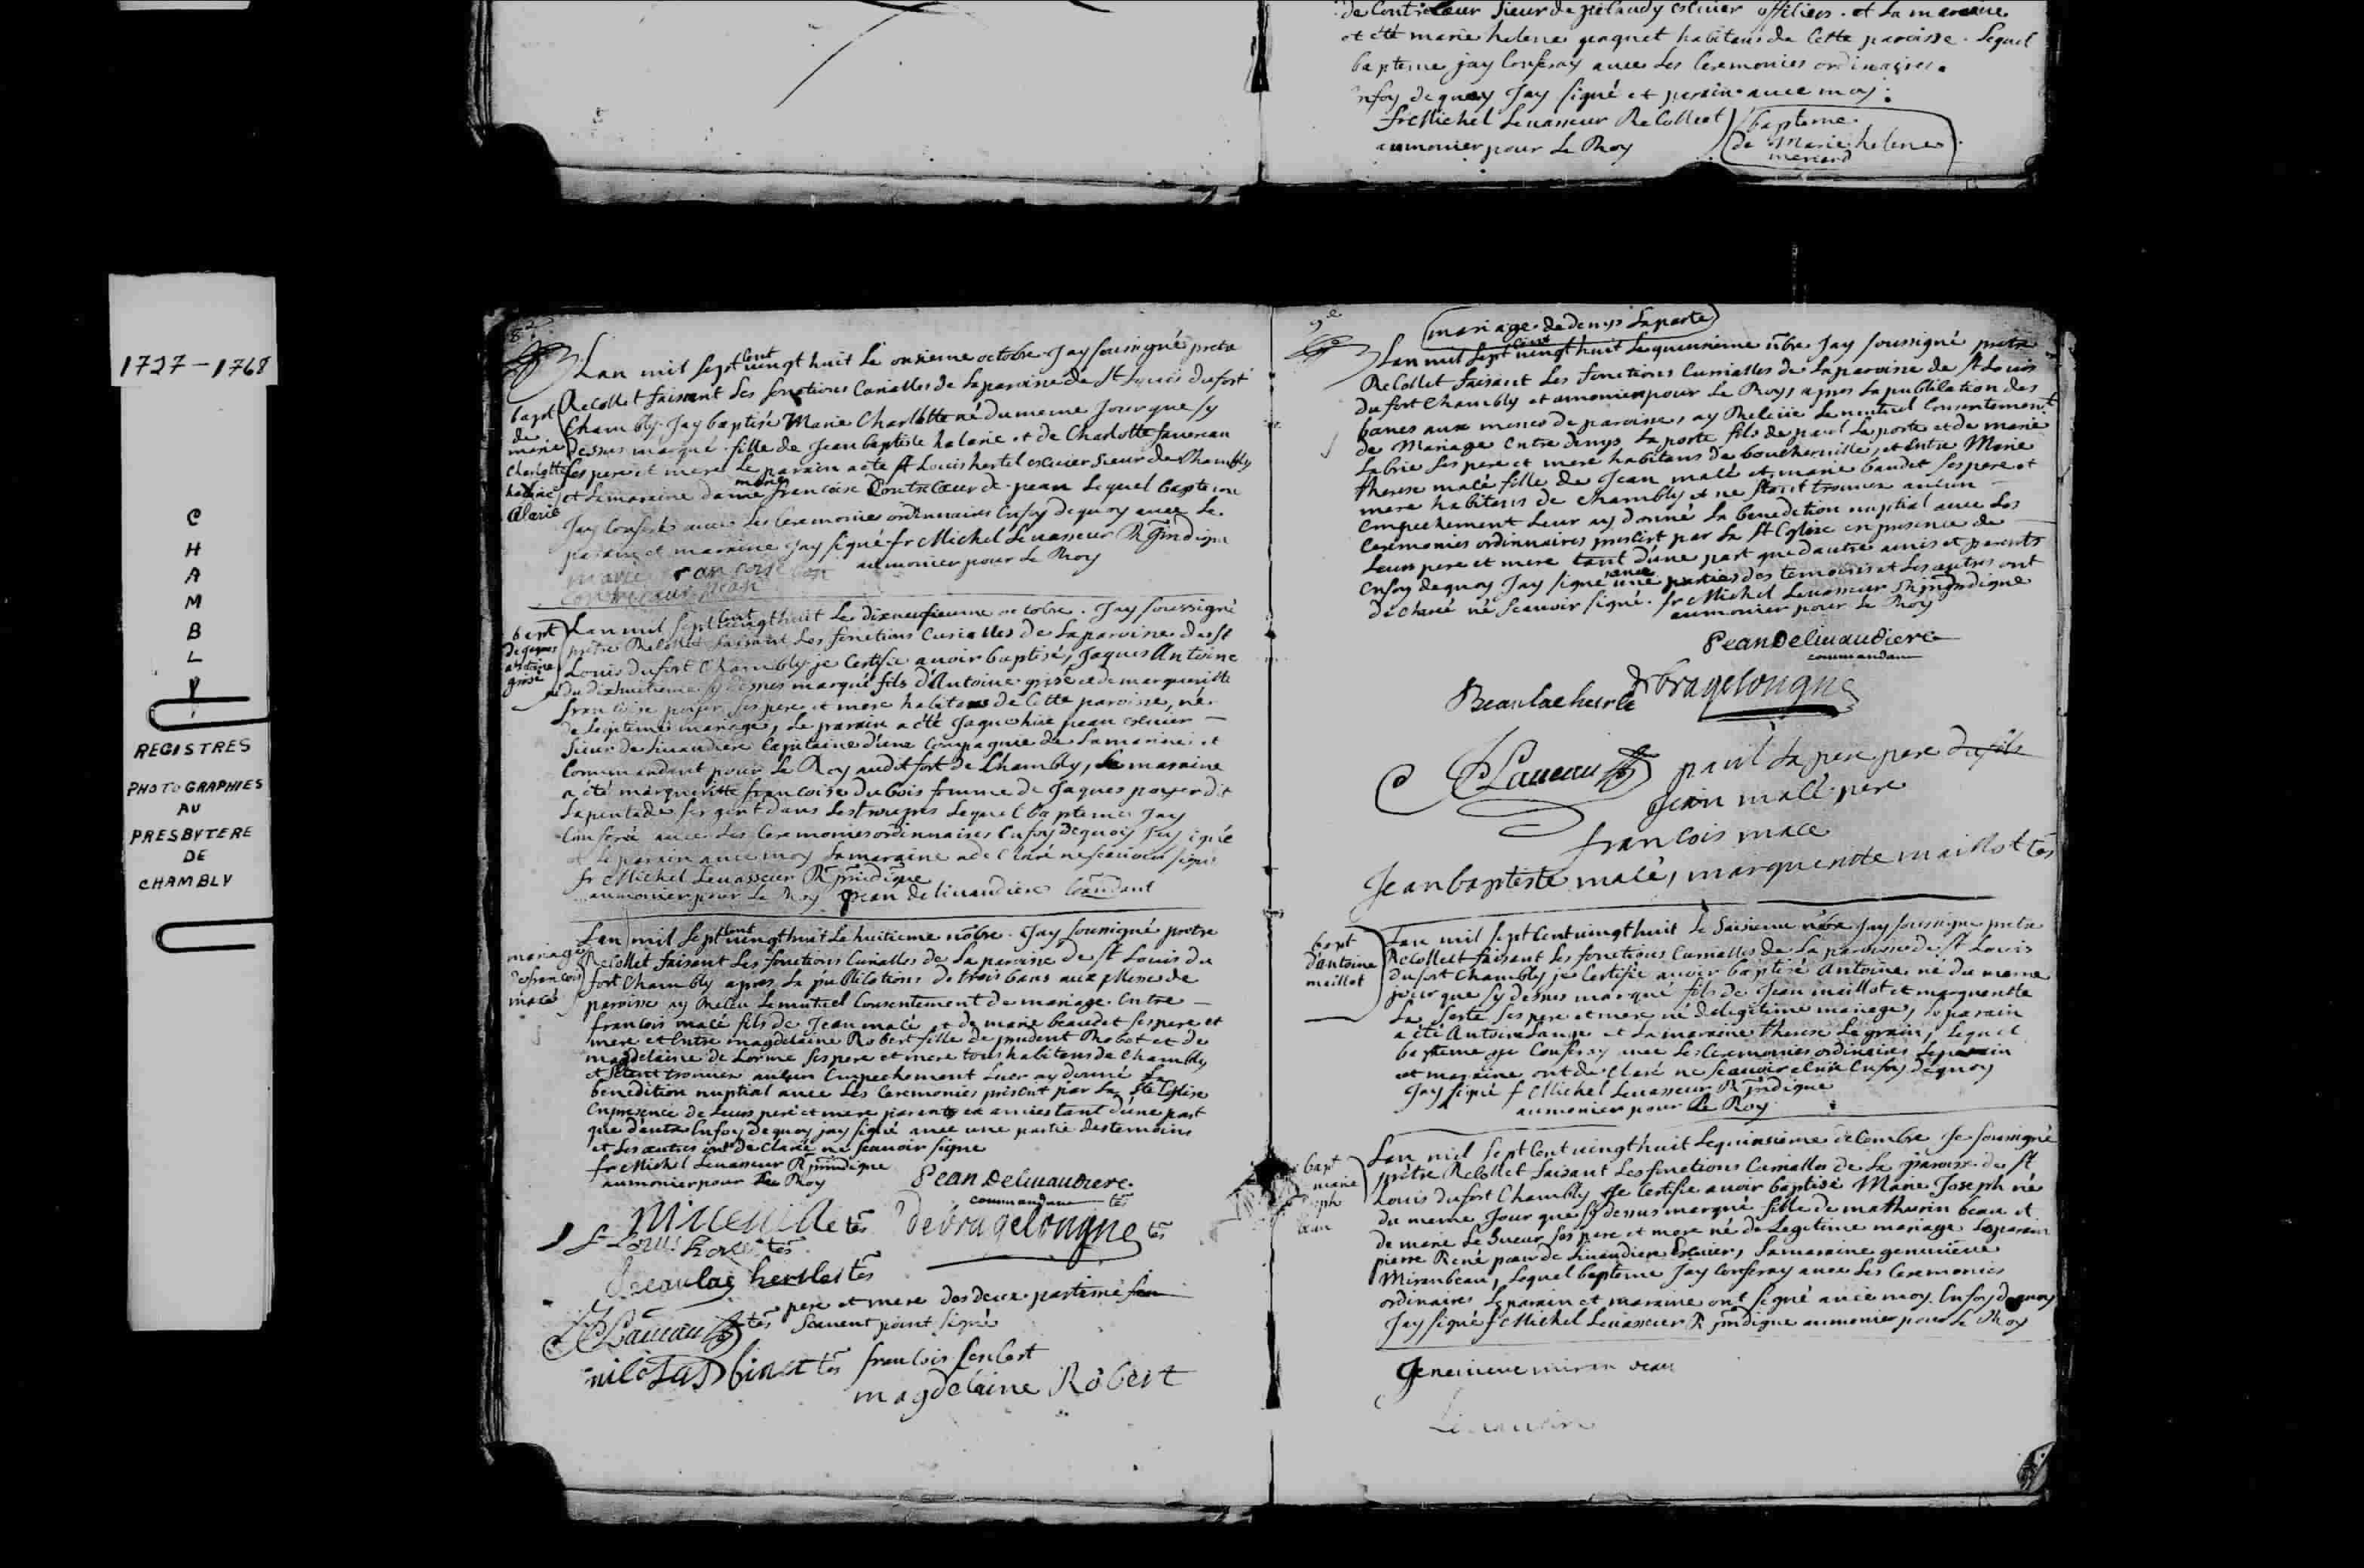 de Contrecoeur Sieur de escuier officier. et La maraine
et été marie helene habitans de Cette paroisse. Lequel
bapteme jay Conferay avec Les Ceremonies ordinaires.
Enfoy dequoy Jay signé et parain avec moy:
fr Michel Levasseur ReCollect
aumonier pour Le Roy
bapteme
de Marie helene
menard
1727-1768
CHAMBLY
REGISTRES
PHOTOGRAPHIES
AU
PRESBYTERE
DE
CHAMBLY
8e
bapt
de
marie
Charlotte
halarie
Alarie
Lan mil sept cent vingt huit Le onsieme octobre Jay sousigné pretre
Recollet faisant Les fonctions Curialles de Laparoisse de St Louis dufort
Chambly. Jay baptisé Marie Charlotte né dumeme Jour que sy
dessus marqué fille de Jean baptiste halarie et de Charlotte favereau
ses pere et mere Le parain a eté st Louis hertel escuier Sieur de Chambly
et Lamaraine dame marie francoise Contrecoeur de pean Lequel bapteme
Jay Conferé avec Les Ceremonies ordinnaires Enfoy dequoy avec Le
parain et maraine Jay signé fr Michel Levasseur R jndigne
aumonier pour Le Roy
marie francoise
Contrecoeur pean
bapt
de jaques
antoine
grisé
Lan mil sept cent vingt huit Le dixneufieume octobre. Jay soussigné
prêtre Recollet faisant Les fonctions Curialles de Laparoisse de St
Louis dufort Chambly je Certifie avoir baptisé, Jaques Antoine
né du dixhuitieme sy dessus marqué fils d'Antoine grisé et de margueritte
francoise poyer ses pere et mere habitans de Cette paroisse, né
de Legitime mariage, Le parain a été Jaque hue pean escuier
Sieur de Livaudiere Capitaine d'une Compagnie de Lamarine et
Commandant pour Le Roy audit fort de Chambly, La maraine
a été margueritte francoise Dubois femme de Jaques poyer dit
Lapintade sergent dans Les troupes Lequel bapteme Jay
Conferé avec Les Ceremonies ordinnaires Enfoy dequoy Jay signé
et Leparain avec moy Lamaraine a de Claré nescavoir signé
fr Michel Levasseur R jndigne
aumonier pour Le Roy pean de livaudiere Comdant
mariage
de francois
macé
Lan mil sept cent vingt huit Le huitieme nobre. Jay sousigné pretre
Recollet faisant Les fonctions Curialles de La paroisse de St Louis du
fort Chambly apres La publications de trois bans aux messe de
paroisse ay Receu Lemutuel Consentement de mariage. Entre
francois macé fils de Jean macé et de marie beaudet ses pere et
mere et Entre magdelaine Robert fille de prudent Robet et de
magdelaine de Lorme ses pere et mere tous habitans de Chambly
et trouver aucun Empechement Luer ay donné La
benedition nuptial avec Les Ceremonies prescrit par La Ste Eglise
Enpresence de Leurs pere et mere parents et amies tant d'une part
que d'autre Enfoy dequoy jay signé avec une partie des temoins
et Les autres ont De Clarée ne scavoir signe
fr Michel Levasseur R jndigne
aumonier pour Le Roy
Pean Delivaudiere
commandant tes
tes Debragelongne tes
St Louis hertel tes
Beaulac hertel tes
pere et mere des deux parti ne
scavent point signé
tes
nicolas binet tes francois
magdelaine Robert
9e
mariage de denys Laporte
Lan mil sept cent vingt huit Le quinsieme nbre Jay soussigné pretre
ReCollet faisant Les fonctions Curialles de Laparoisse de St Louis
du fort Chambly et aumonier pour Le Roy, apres Lapublication des
banes aux messes de paroisse, ay Receue Le mutuel Consentement
de Mariage Entre denys Laporte fils de paul Laporte et de marie
Labrie ses pere et mere habitans de boucherville, et Entre Marie
therese macé fille de Jean macé et marie baudet ses pere et
mere habitans de Chambly et ne trouver aucun
Empechement Leur ay donné La benedition nuptial avec Les
Ceremonies ordinnaires prescirt par La St Eglise en presence de
Leurs pere et mere tant d'une part que dautre amis et parents
Enfoy dequoy Jay signé avec une parties des temoins et Les autres ont
de Claré né scavoir signé. fr Michel Levasseur R jndigne
aumonier pour Le Roy
Pean Delivaudiere
commandant
Debragelongne
Beaulac hertle
paul La pere
Jean macé pere
francois mace
Jean baptiste macé, marguerite maillot tes
bapt
d'antoine
maillot
Lan mil sept Cent vingt huit Le Saisieme nobre Jay soussigné pretre
Recollect faisant Les fonctions Curialles de La paroisse de St Louis
dufort Chambly je Certifie avoir baptisé Antoine né du meme
jour que sy dessus marqué fils de Jean maillot et marguerite
La ses pere et mere né delegitime mariage, Le parain
a été Antoine et Lamaraine therese Legrain, Lequel
bapteme je Conferay avec Les Ceremonies ordinaires Leparain
et maraine ont de Claré ne scavoir Enfoy dequoy
Jay signé f Michel Levasseur R jndigne
aumonier pour Le Roy
bapt
marie
joseph
beau
Lan mil sept Cent vingt huit Lequinsieme decembre Je soussigné
prêtre Recollet faisant Les fonctions Curialles de La paroisse de St
Louis dufort Chambly Je Certifie avoir baptisé Marie Joseph né
du meme Jour que sy dessus marqué fille de mathurin beau et
de marie Le Sueur ses pere et mere né de Legitime mariage Leparain
pierre René pean de Livaudiere Escuier, Lamaraine genevieve
Mirambeau, Lequel bapteme Jay Conferay avec Les Ceremonies
ordinaires Leparain et maraine ont signé avec moy. Enfoy dequoy
Jay signé f Michel Levasseur R jndigne aumonier pour Le Roy
Genevieve miranbeau